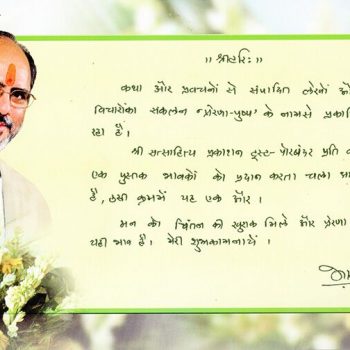 ॥ श्रीहरिः ॥
कथा और प्रवचनों से संपादित लेखों औ
विचारोंका संकलन 'प्रेरणा-पुष्प' के नामसे प्रकाशि
रहा है।
श्री सत्साहित्य प्रकाशन ट्रस्ट- पोरबंदर प्रति व
एक पुस्तक भावकों को प्रदान करता चला आ
है, उसी क्रममें यह एक और ।
मन को चिंतन की खुराक मिले और प्रेरणा
यही भाव है। मेरी शुभकामनायें ।